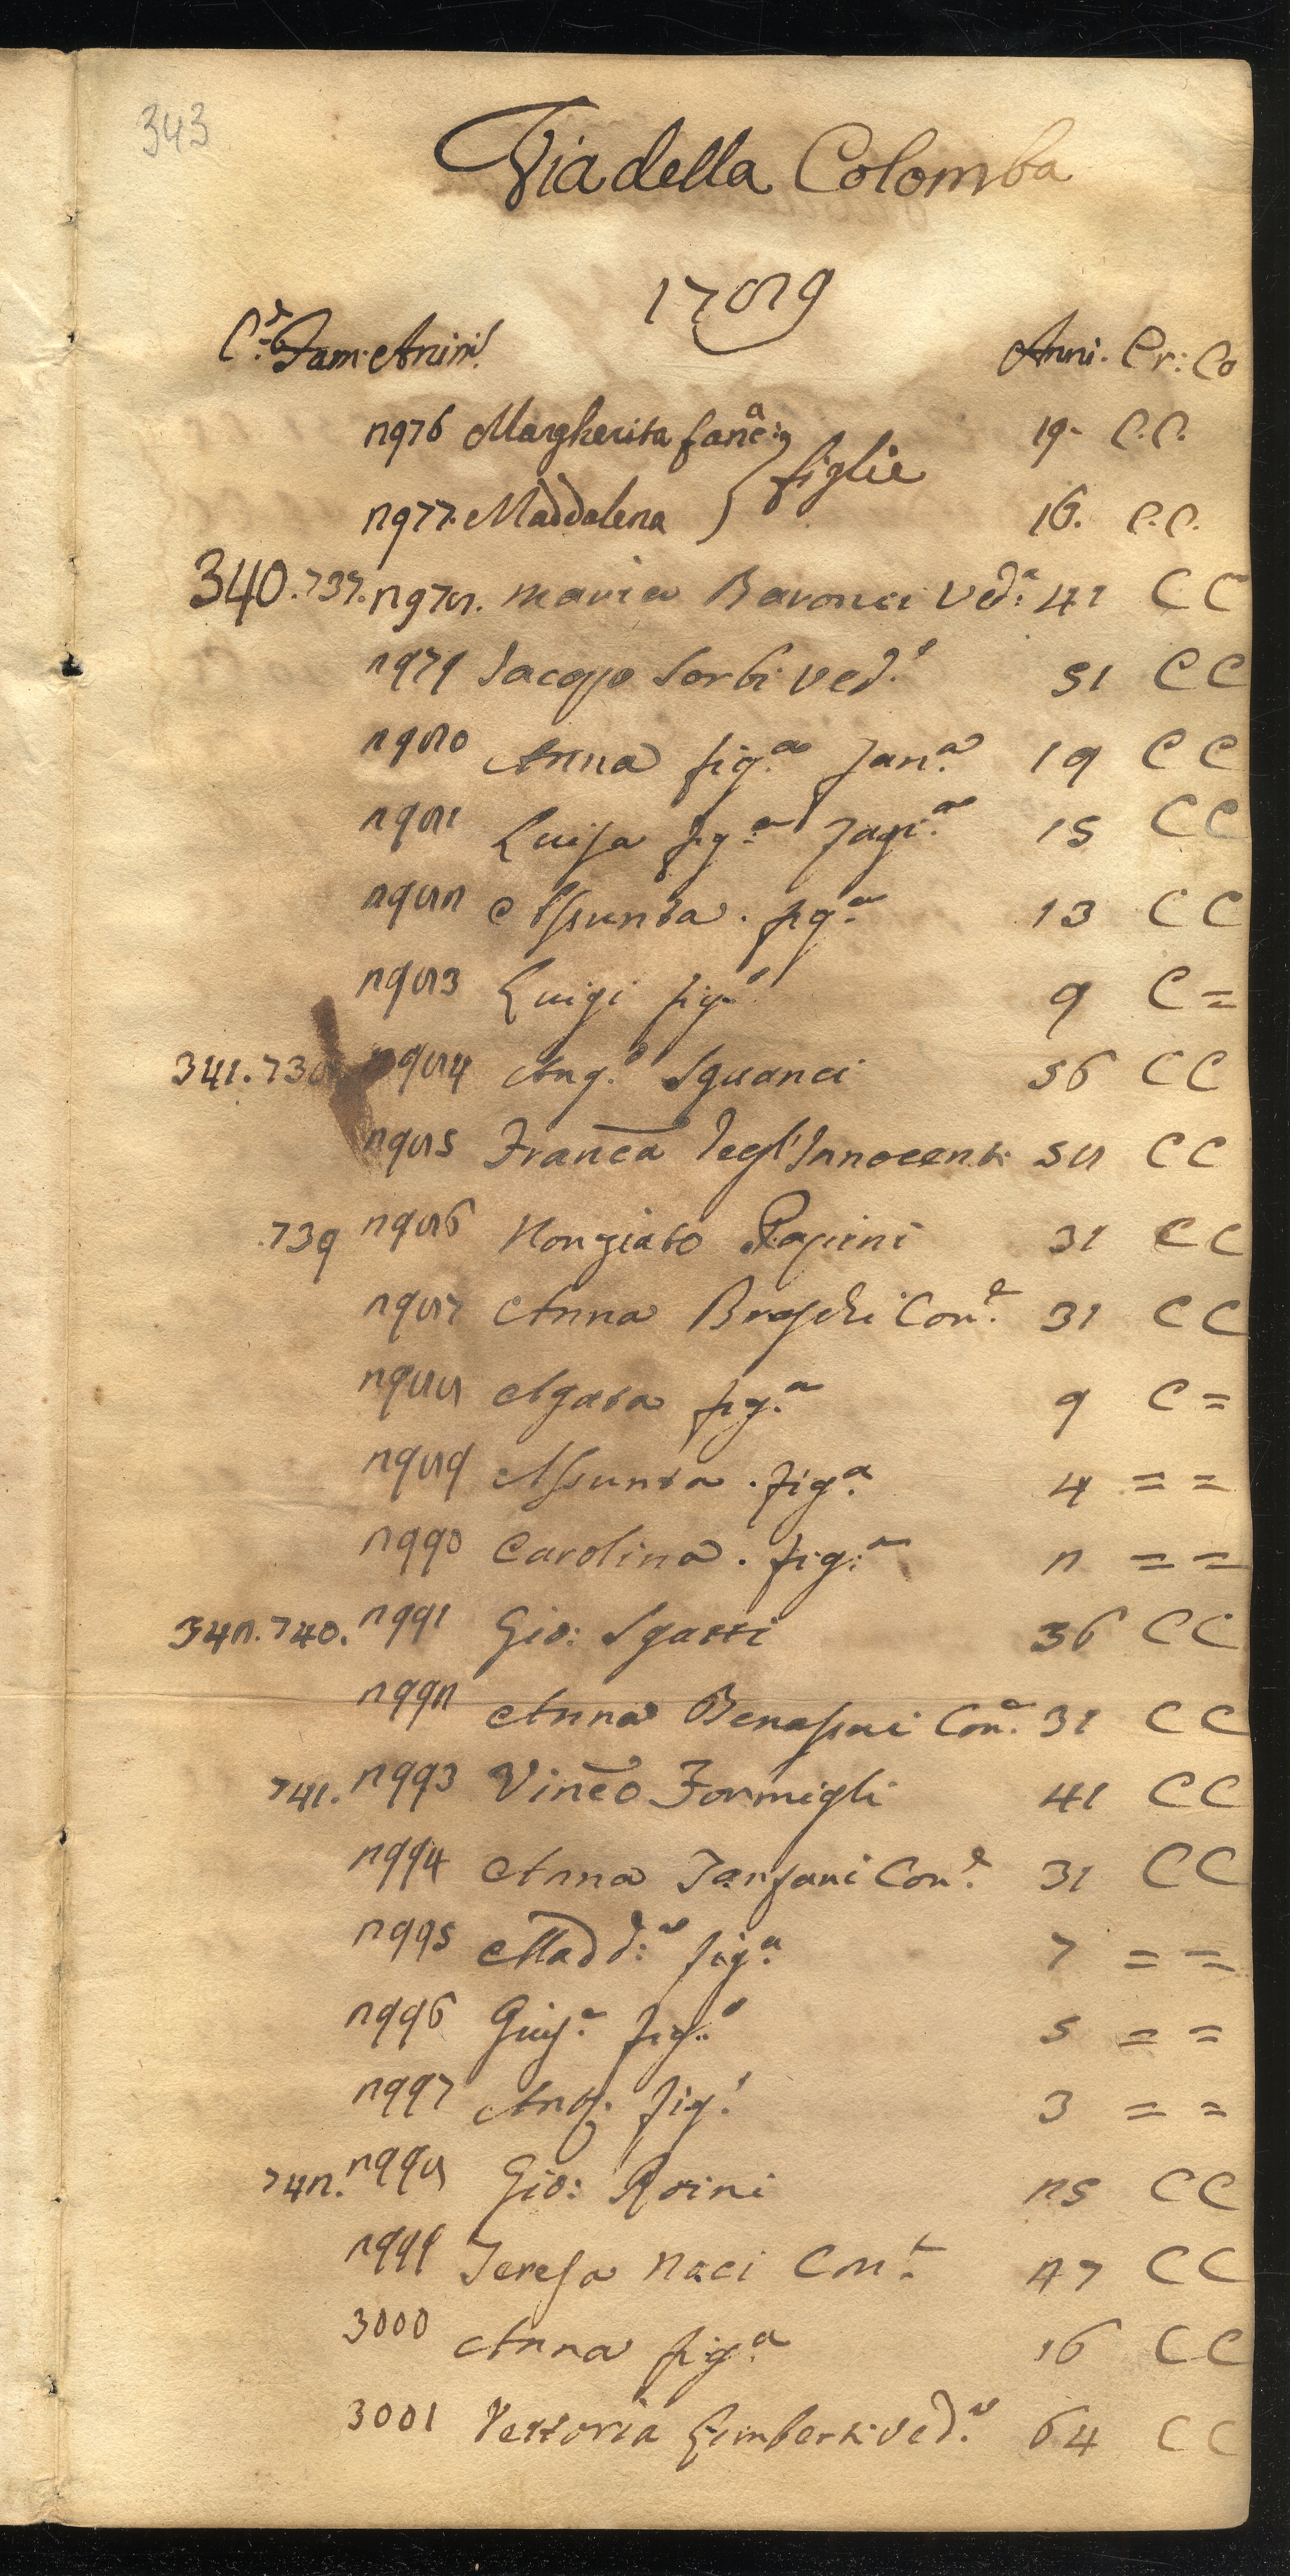 343
Via della Colomba
1789
C.e Fam: Anim! Anni. Cr: Co
2976 Margherita fanc:a 19. C.C.
figlie
2977. Maddalena 16. C.C.
340. 737. 2978. Maria Baronci Ved:a 41 C C
2979 Jacopo Sorbi ved.o 51 C C
2980 Anna fig.a fan.a 19 C C
2981 Luisa fig.a 15 C C
2982 Assunta. fig.a 13 C C
2983 Luigi fig.o 9 C =
341. 738 2984 Ang.o Sguanci 56 C C
2985 Franca degl'Innocenti 58 C C
739 2986 Papini 31 C C
2987 Anna Braschi Con.e 31 C C
2988 Agata fig.a 9 C =
2989 Assunta. fig.a 4 = =
2990 Carolina. fig:a 2 = =
342. 740. 2991 Gio: Sgatti 36 C C
2992 Anna Con.e 31 C C
741. 2993 Vinco Formigli 41 C C
2994 Anna Tarsani Con.e 31 C C
2995 Madd:a fig.a 7 = =
2996 Gius.e fig.o 5 = =
2997 Ant. fig.o 3 = =
742. 2998 Gio: Roini 25 C C
2999 Teresa Naci Con.e 27 C C
3000 Anna fig.a 16 C C
3001 Vettoria Gimberti ved.a 64 C C